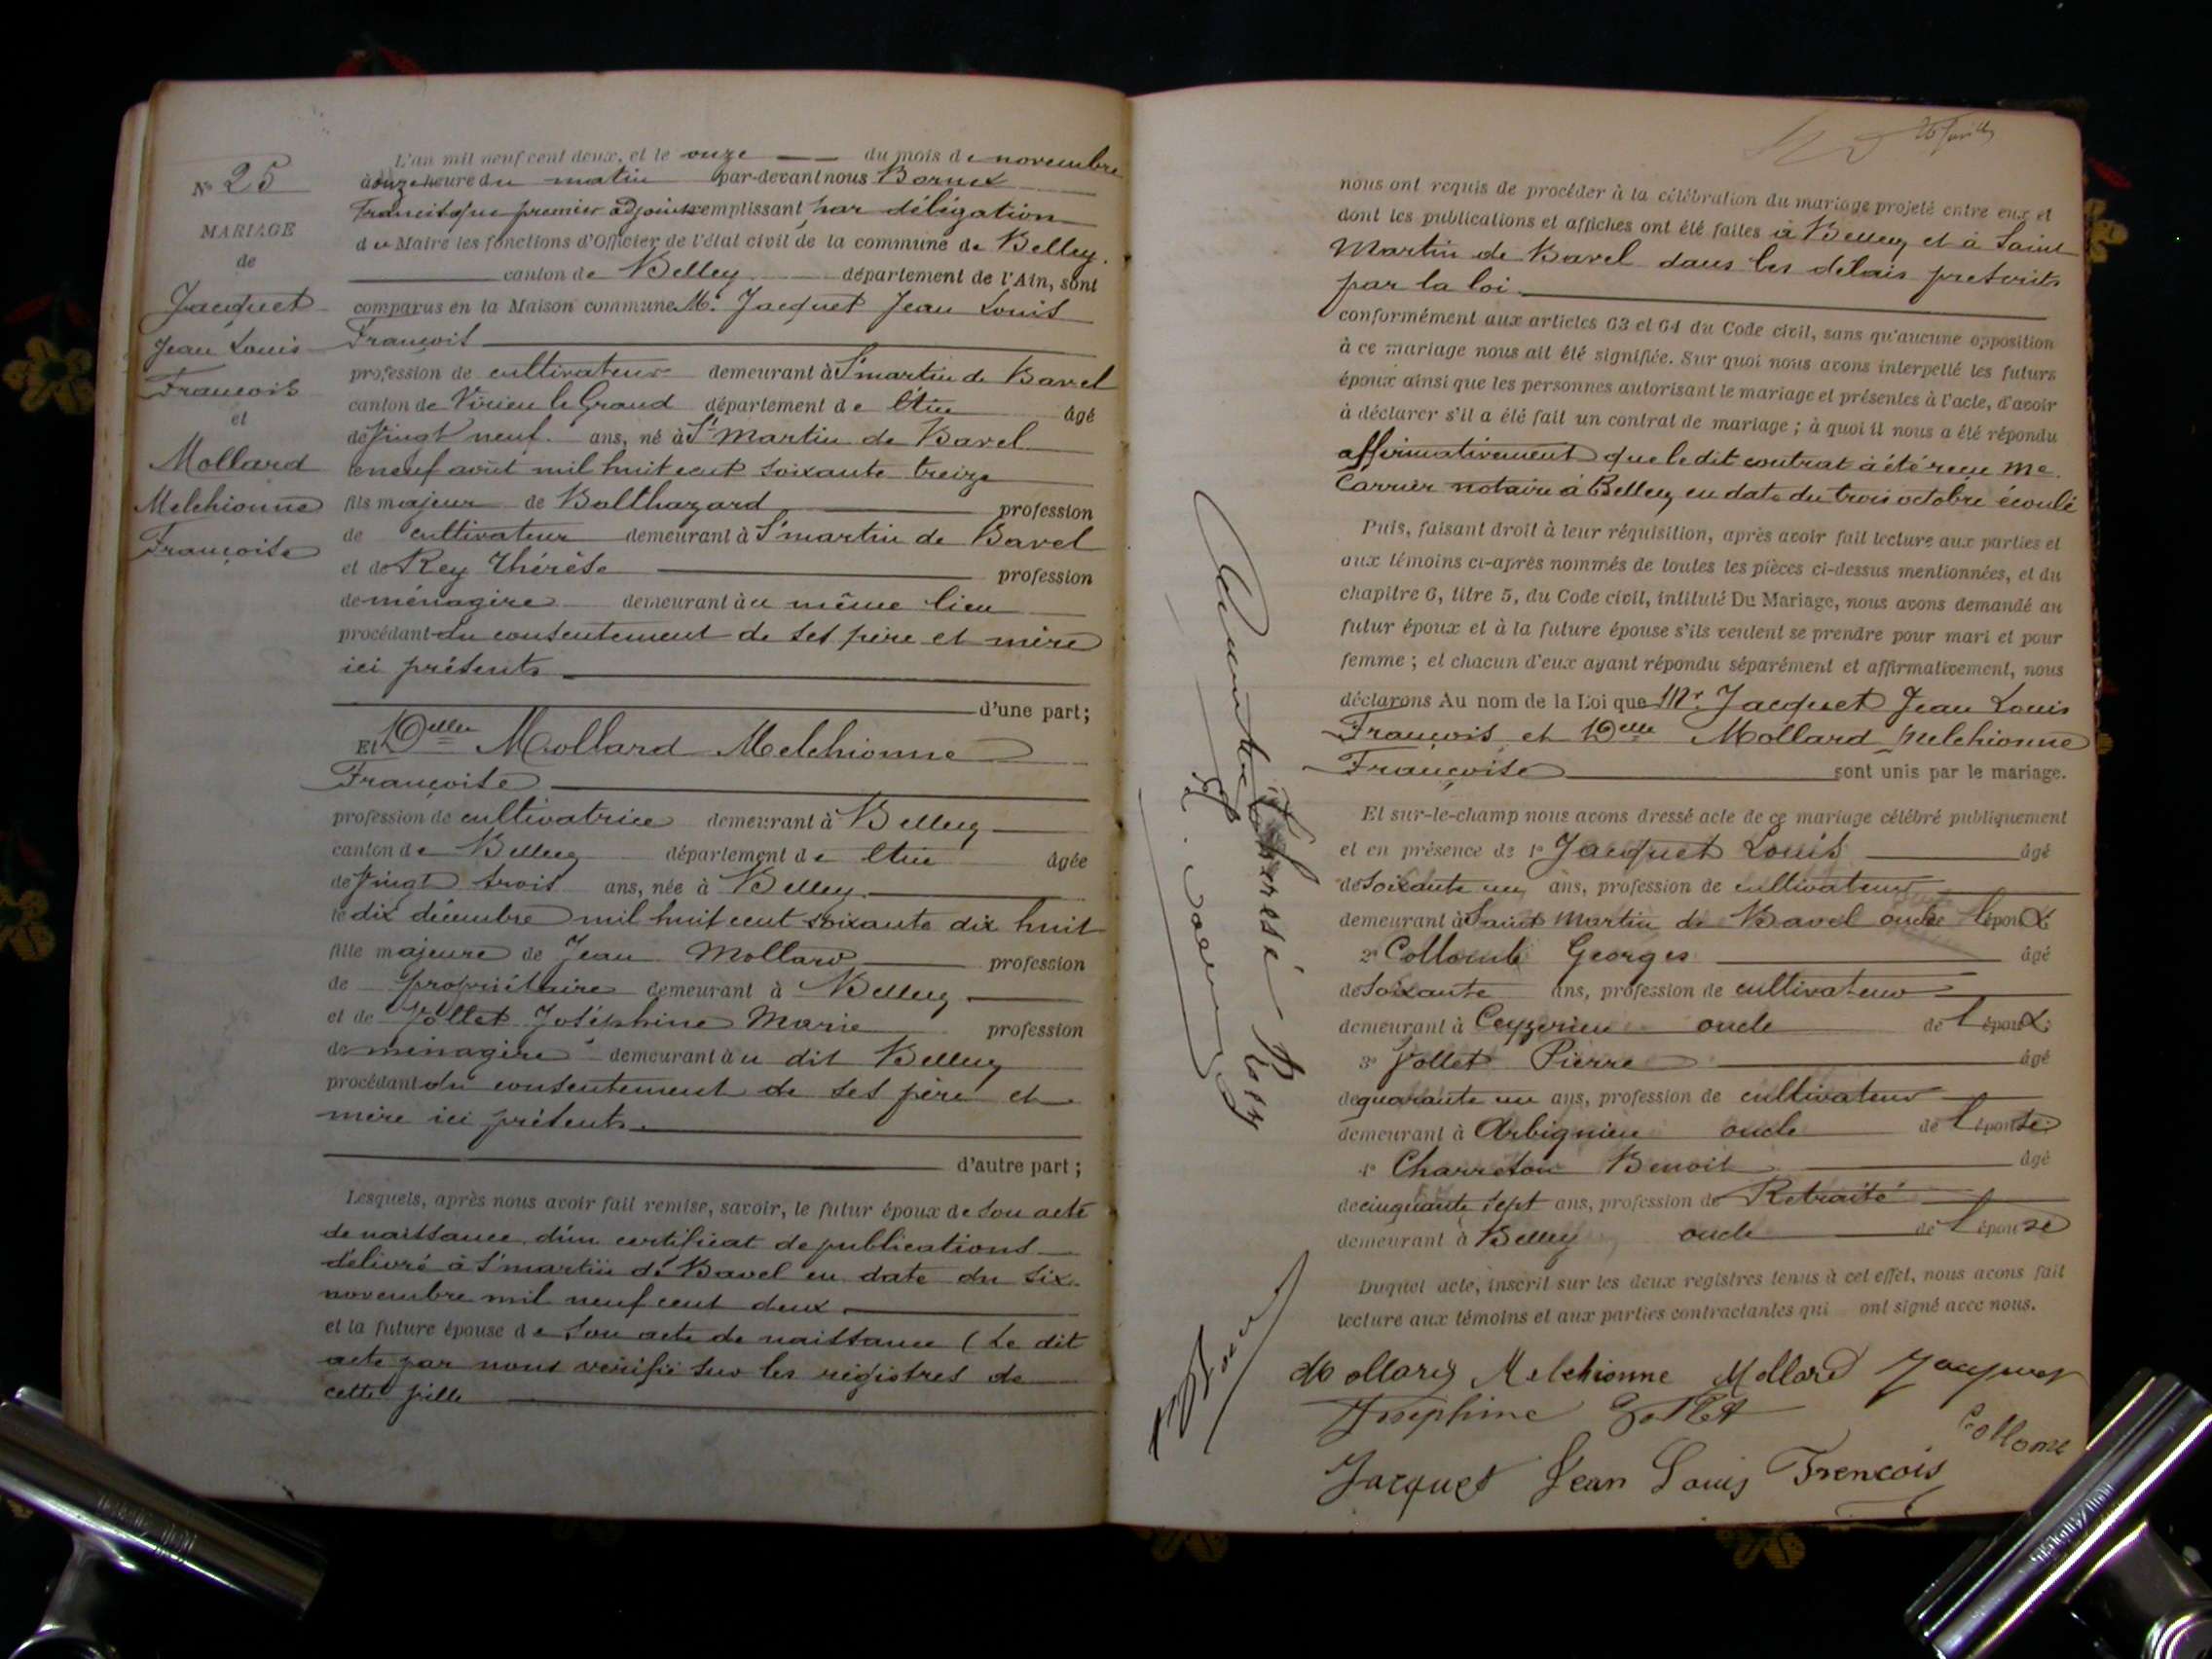 N° 25
MARIAGE
de
Jacquet
Jean Louis
François
et
Mollard
Melchionne
Françoise
L'an mil neuf cent deux, et le onze du mois de novembre
à onze heure du matin par-devant nous Bornex
Francisque premier adjoint remplissant par délégation
du Maire les fonctions d'Officier de l'état civil de la commune de Belley.
canton de Belley département de l'Ain, sont
comparus en la Maison commune Mr. Jacquet Jean Louis
François
profession de cultivateur demeurant à St martin de Bavel
canton de Virieu le Grand département de l'Ain âgé
de vingt neuf ans, né à St Martin de Bavel
le neuf août mil huit cent soixante treize
fils majeur de Balthazard profession
de cultivateur demeurant à St martin de Bavel
et de Rey Thérèse profession
de ménagère demeurant àu même lieu
procédant du consentement de ses père et mère
ici présents
d'une part;
Et Delle Mollard Melchionne
Françoise
profession de cultivatrice demeurant à Belley
canton de Belley département de l'Ain âgée
de vingt trois ans, née à Belley
le dix décembre mil huit cent soixante dix huit
fille majeure de Jean Mollard profession
de propriétaire demeurant à Belley
et de Jollet Joséphine Marie profession
de ménagère demeurant àu dit Belley
procédant du consentement de ses père et
mère ici présents
d'autre part;
Lesquels, après nous avoir fait remise, savoir, le futur époux de son acte
de naissance d'un certificat de publications
délivré à St martin de Bavel en date du six
novembre mil neuf cent deux
et la future épouse de son acte de naissance (le dit
acte par nous vérifié sur les régistres de
cette ville
nous ont requis de procéder à la célébration du mariage projeté entre eux et
dont les publications et affiches ont été faites à Belley et à Saint
Martin de Bavel dans les délais prescrits
par la loi
conformément aux articles 63 et 64 du Code civil, sans qu'aucune opposition
à ce mariage nous ait été signifiée. Sur quoi nous avons interpellé les futurs
époux ainsi que les personnes autorisant le mariage et présentes à l'acte, d'avoir
à déclarer s'il a été fait un contrat de mariage; à quoi il nous a été répondu
affirmativement que le dit contrat à été reçu Me
Carrier notaire à Belley en date du trois octobre écoulé
Puis, faisant droit à leur réquisition, après avoir fait lecture aux parties et
aux témoins ci-après nommés de toutes les pièces ci-dessus mentionnées, et du
chapitre 6, titre 5, du Code civil, intitulé Du Mariage, nous avons demandé au
futur époux et à la future épouse s'ils veulent se prendre pour mari et pour
femme; et chacun d'eux ayant répondu séparément et affirmativement, nous
déclarons Au nom de la Loi que Mr. Jacquet Jean Louis
François et Delle Mollard Melchionne
Françoise sont unis par le mariage.
Et sur-le-champ nous avons dressé acte de ce mariage célébré publiquement
et en présence de 1° Jacquet Louis âgé
de soixante un ans, profession de cultivateur
demeurant à Saint Martin de Bavel oncle de l'époux
2° Collomb Georges âgé
de soixante ans, profession de cultivateur
demeurant à Ceyzerieu oncle de l'époux
3° Jollet Pierre âgé
de quarante un ans, profession de cultivateur
demeurant à Arbignieu oncle de l'épouse
4° Charreton Benoit âgé
de cinquante sept ans, profession de Retraité
demeurant à Belley oncle de l'épouse
Duquel acte, inscrit sur les deux registres tenus à cet effet, nous avons fait
lecture aux témoins et aux parties contractantes qui ont signé avec nous.
Mollard Melchionne Mollard Jacquet
Joséphine Jollet
Collomb
Jacquet Jean Louis Frencois
Thérèsé Rey